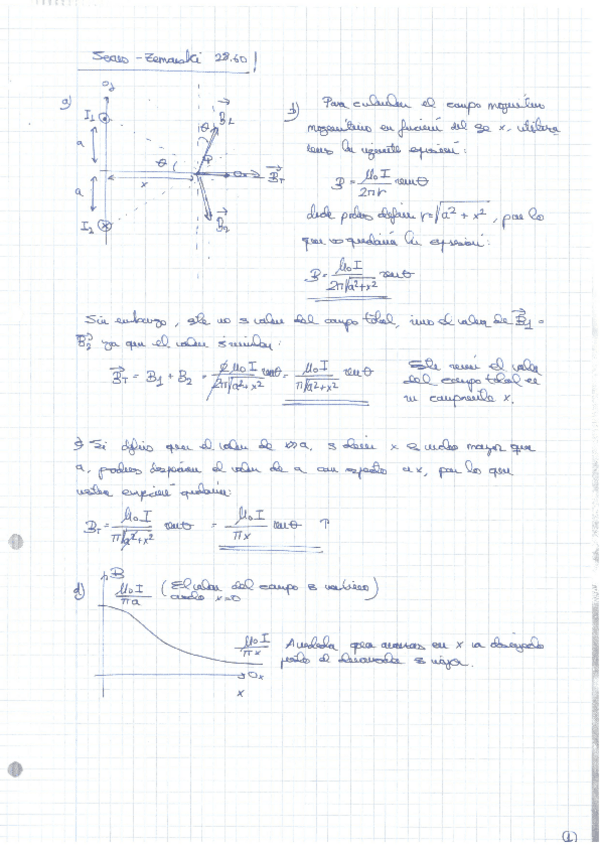 Sears - Zemanski 28.60
a)
y
I₁
a
a
I₂
x
θ
θ
P
B⃗₁
B⃗₂
B⃗T
b) Para calcular el campo magnético
magnético en función del eje x, utiliza
B = μ₀I / 2πr senθ
podemos definir r = √a² + x², por lo
que nos quedaría la expresión:
B = μ₀I / 2π√a²+x² senθ
Sin embargo, este no es valor del campo total, sino el valor de B⃗₁ =
B⃗₂ ya que el valor es similar:
B⃗T = B₁ + B₂ = 2μ₀I / 2π√a²+x² senθ = μ₀I / π√a²+x² senθ
Este será el valor
del campo total en
su componente x.
Si que el valor de x>>a, es decir x es mucho mayor que
a, podemos despreciar el valor de a con respecto a x, por lo que
nuestra expresión quedaría:
BT = μ₀I / π√a²+x² senθ = μ₀I / πx senθ
d) B
μ₀I / πa (El valor del campo es
cuando x=0)
μ₀I / πx
A medida que avanzas en x va
x
x
1